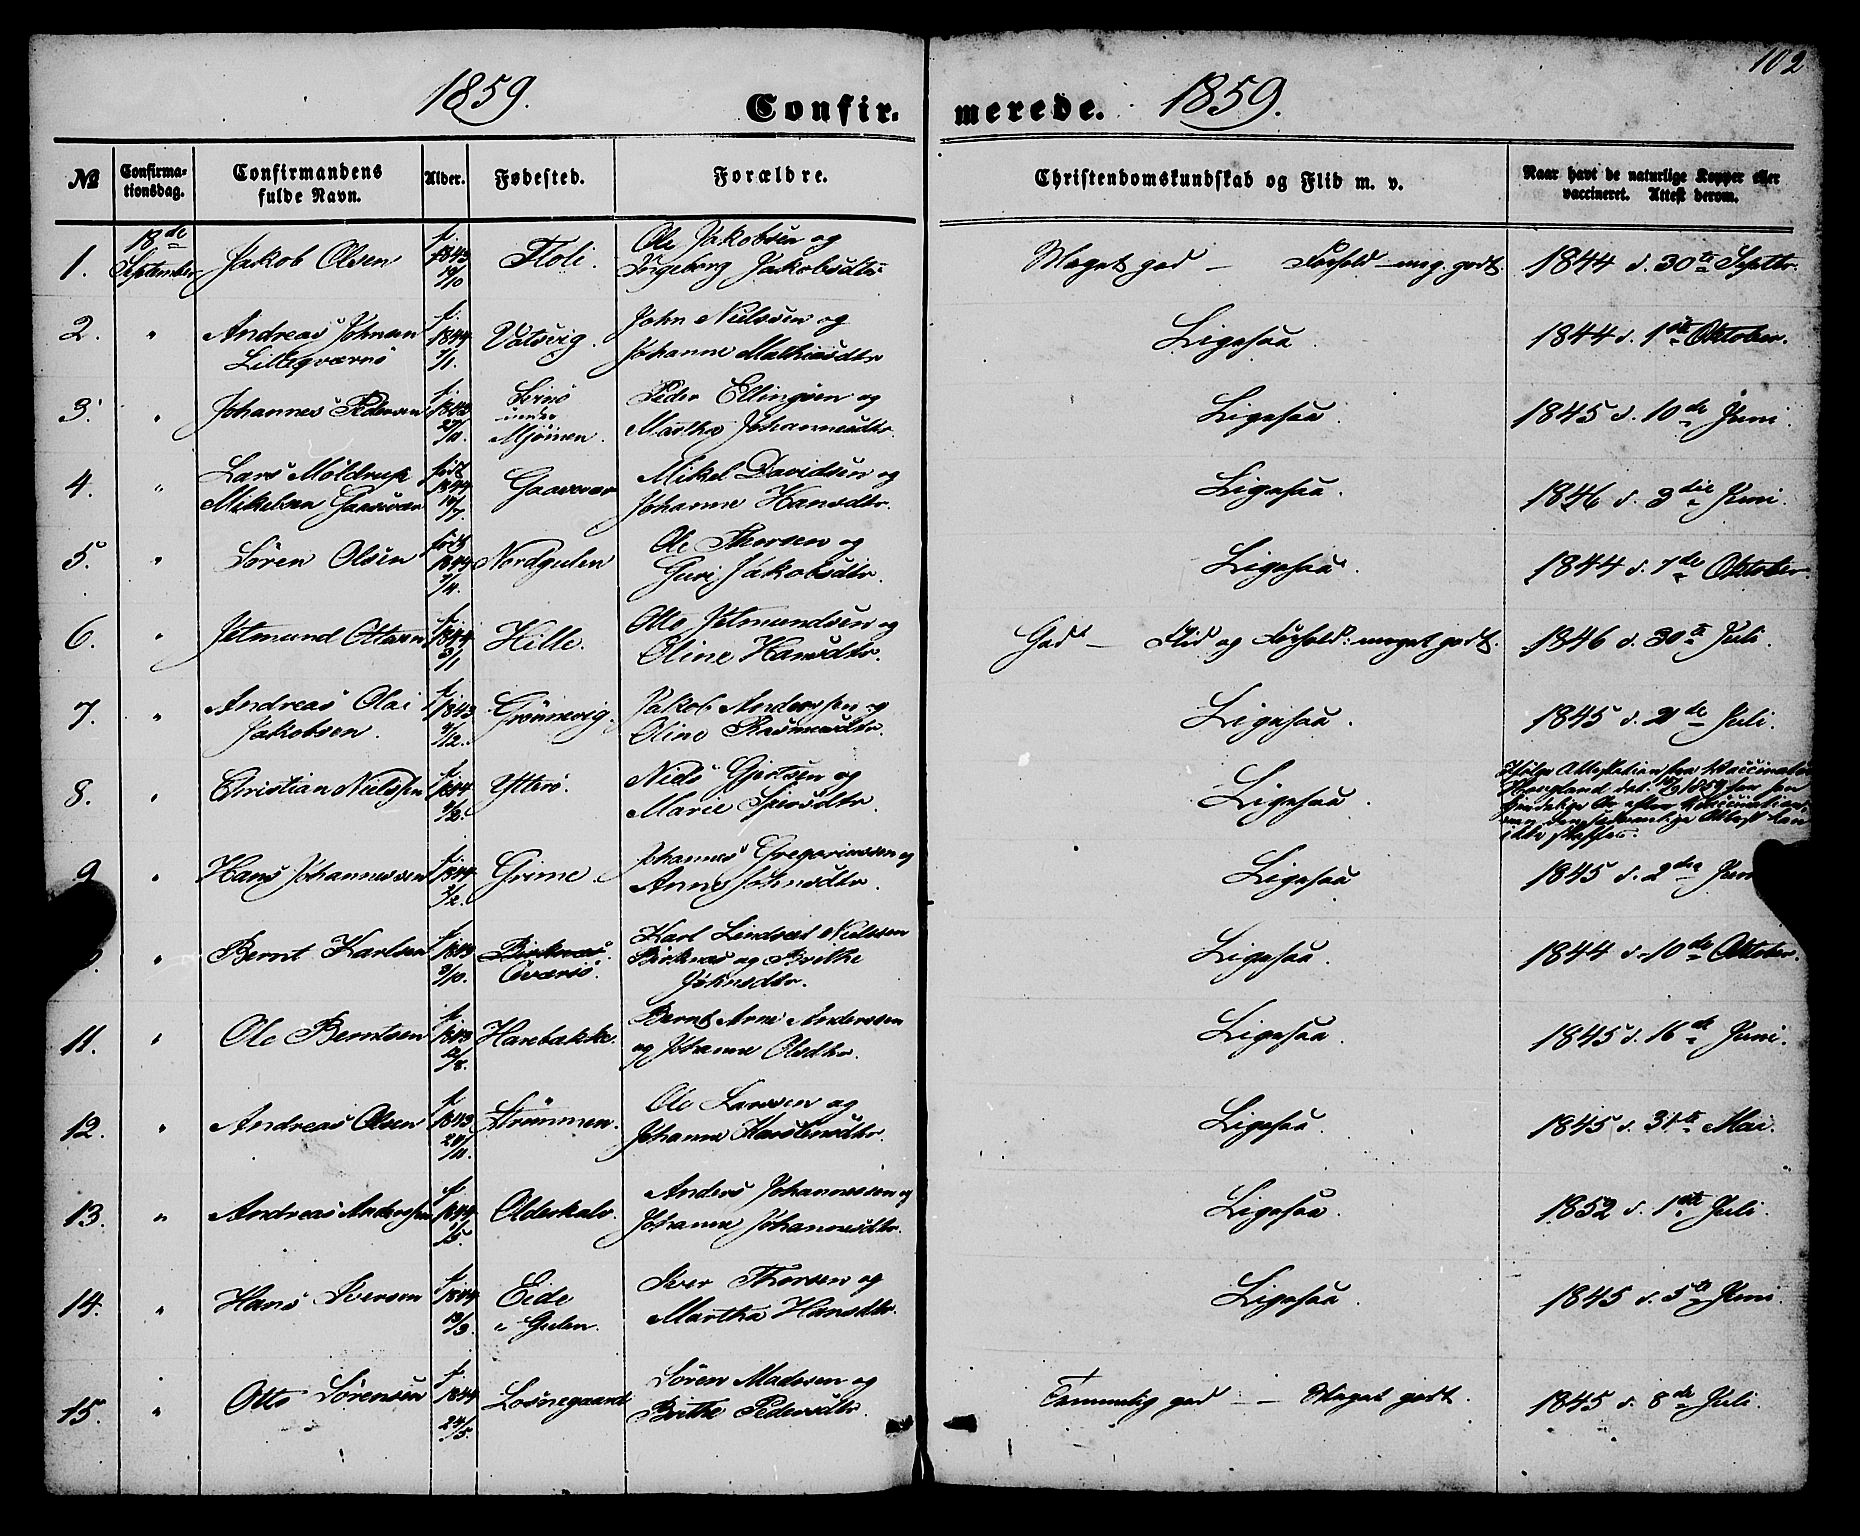 102
1859. Confirmerede. 1859.
№ Confirmationsdag. Confirmandens fulde Navn. Alder. Fødested. Forældre. Christendomskundskab og Flid m. v. Naar havt de naturlige Kopper eller vaccineret. Attest derom.
1. 18de September Jakob Olsen f. 1843 Floli. Ole Jakobsen og Ingeborg Jakobsdtr Meget god — Forhold — meg. godt. 1844 d. 30te Septbr.
2. " Andreas Johnsen Lilleqværnø f. 1844 7/1. Vatsvig. John Nielssen og Johanne Mathiasdtr Ligesaa. 1844 d. 1ste Oktober.
3. " Johannes Pedersen f. 1843 27/11. under Mjømen. Peder Ellingsen og Martha Johannesdtr. Ligesaa. 1845 d. 10de Juni.
4. " Lars Møldrup Mikelsen Gaasvær født 1844 /7. Gaasvær Mikel Davidsen og Johanne Hansdtr. Ligesaa. 1846 d. 3die Juni.
5. " Søren Olsen født Nordgulen Ole Thorsen og Guri Jakobsdtr. Ligesaa. 1844 d. 7de Oktober.
6. " Jetmund Ottesen f. 1844 /1 Hille. Otto Jetmundsen og Oline Hansdtr. God — Flid og Forhold: meget godt. 1846 d. 30te Juli.
7. " Andreas Olai Jakobsen. f. 1843 /12. Grønnevig. Jakob Anderssen og Oline Rasmusdtr. Ligesaa. 1845 d. 2de Juli.
8. " Christian Nielssen f. 1844 /2. Ytterø. Niels Gjertsen og Marie Ligesaa. Ifølge Attestation fra Vaccinatør Haugland dat. 1859 har han Ar efter Vaccinationen, men den sædvanlige Attest kan ikke skaffes.
9 " Hans Johannessen f. 1844 2/2. Grime. Johannes Gregoriussen og Anne Johnsdtr. Ligesaa 1845 d. 2den Jun
" Bernt Karlsen f. 1843 9/10. Birknæs. Qværnø. Karl Nielssen Birknæs og Brithe Johnsdtr. Ligesaa. 1844 d. 10de Oktober.
11. " Ole Berntsen f. 1843 /8. Harebakke. Bernt Arne Anderssen og Johanne Olsdtr. Ligesaa. 1845 d. 16de Juni.
12. " Andreas Olsen f. 1843 /11. Strømmen. Ole Larssen og Johanne Karstensdtr. Ligesaa. 1845 d. 31te Mai.
13. " Andreas Anderssen f. 1844 /5. Olderkalv. Anders Johannessen og Johanne Johannesdtr. Ligesaa. 1852 d. 1ste Juli.
14. " Hans Iversen f. 1844 19/3. Eide " Gulen. Iver Thorsen og Martha Hansdtr. Ligesaa. 1845 d. 5te Juni.
15. " Otto Sørensen f. 1844 24/5. Losnegaard Søren Madssen og Brithe Pedersdtr. Temmelig god — — Meget godt. 1845 d. 8de Juli.